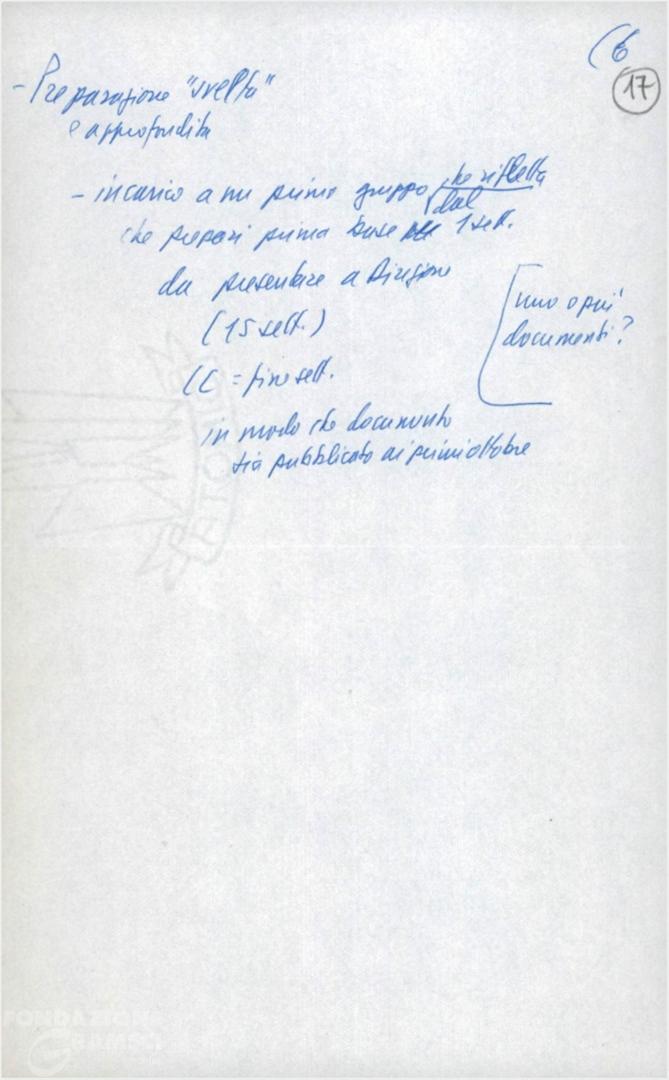 (6
17
- Preparazione "svelta"
e approfondita
- incarico a un primo gruppo che rifletta
che prepari prima base dal 1 sett.
da presentare a Direzione
(15 sett.)
CC = fine sett.
[uno o più
documenti?
in modo che documento
sia pubblicato ai primi ottobre
FONDAZIONE
GRAMSCI